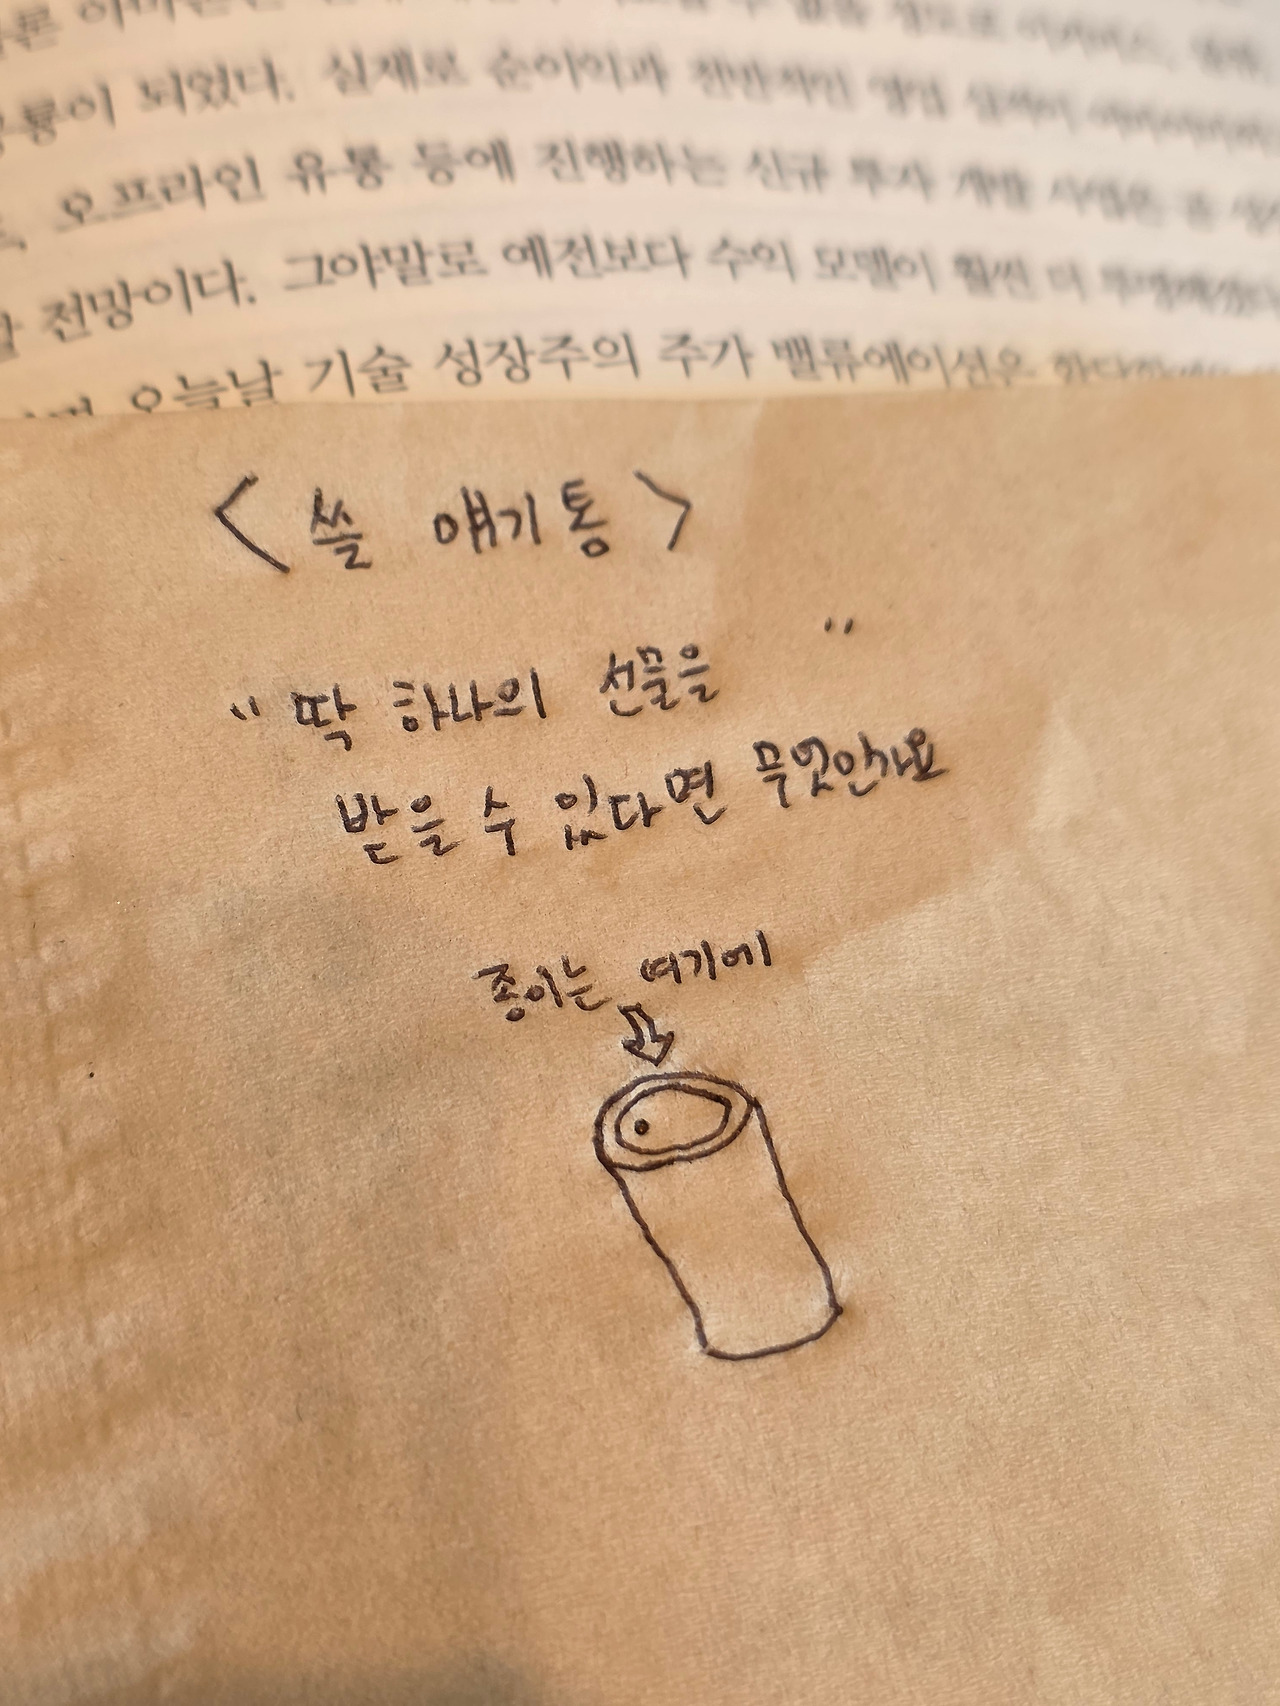 되었다. 실재로 순이익과 전반적인 영업
오프라인 유통 등에 진행하는 신규 투자 개발 사업은
전망이다. 그야말로 예전보다 수익 모델이 훨씬 더
오늘날 기술 성장주의 주가 밸류에이션은
< 쓸 얘기통 >
" 딱 하나의 선물을 "
받을 수 있다면 무엇인가요
종이는 여기에